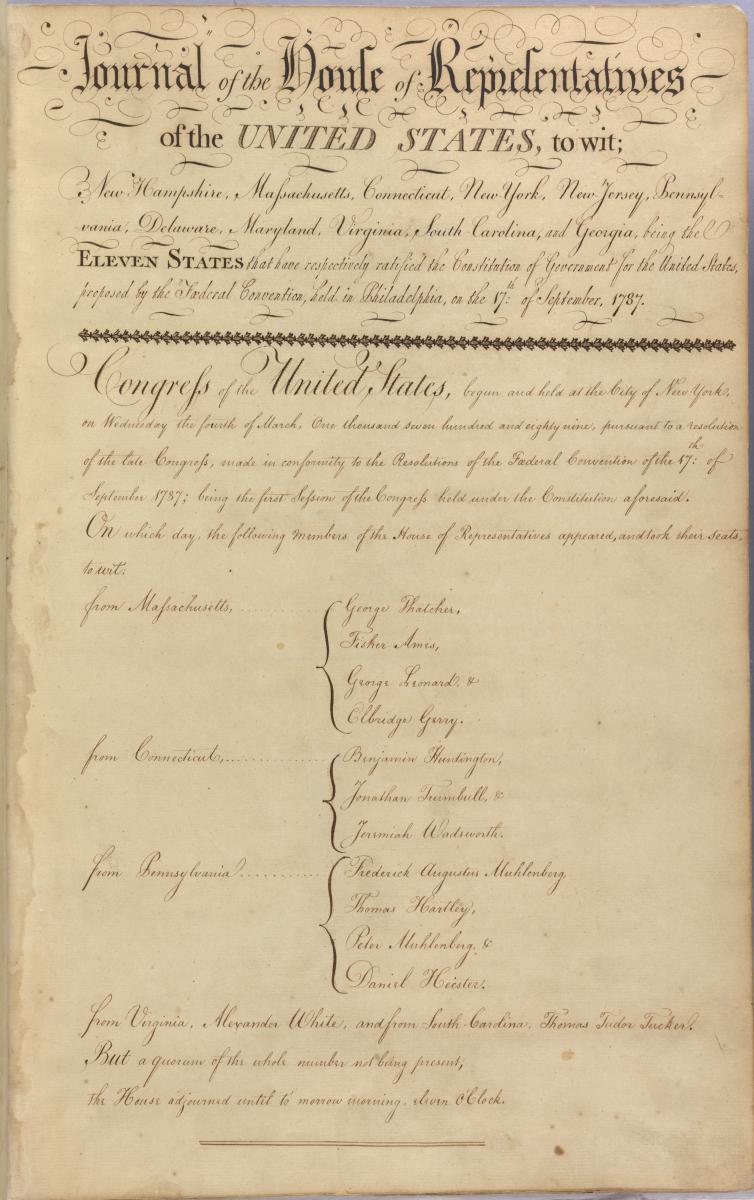 Journal of the House of Representatives
of the UNITED STATES, to wit;
New Hampshire, Massachusetts, Connecticut, New York, New Jersey, Pennsyl-
vania, Delaware, Maryland, Virginia, South Carolina, and Georgia, being the
ELEVEN STATES that have respectively ratified the Constitution of Government for the United States,
proposed by the Fœderal Convention, held in Philadelphia, on the 17:th of September, 1787.
Congress of the United States, begun and held at the City of New York,
on Wednesday the fourth of March, One thousand seven hundred and eighty nine, pursuant to a resolution
of the late Congress, made in conformity to the Resolutions of the Fœderal Convention of the 17:th of
September 1787; being the first Session of the Congress held under the Constitution aforesaid.
On which day, the following members of the House of Representatives appeared, and took their seats,
to wit:
from Massachusetts, George Thatcher,
Fisher Ames,
George Leonard, &
Elbridge Gerry.
from Connecticut, Benjamin Huntington,
Jonathan Trumbull, &
Jeremiah Wadsworth.
from Pennsylvania Frederick Augustus Muhlenberg,
Thomas Hartley,
Peter Muhlenberg, &
Daniel Heister.
from Virginia, Alexander White, and from South-Carolina, Thomas Tudor Tucker.
But a quorum of the whole number not being present,
the House adjourned until to morrow morning, eleven O'Clock.